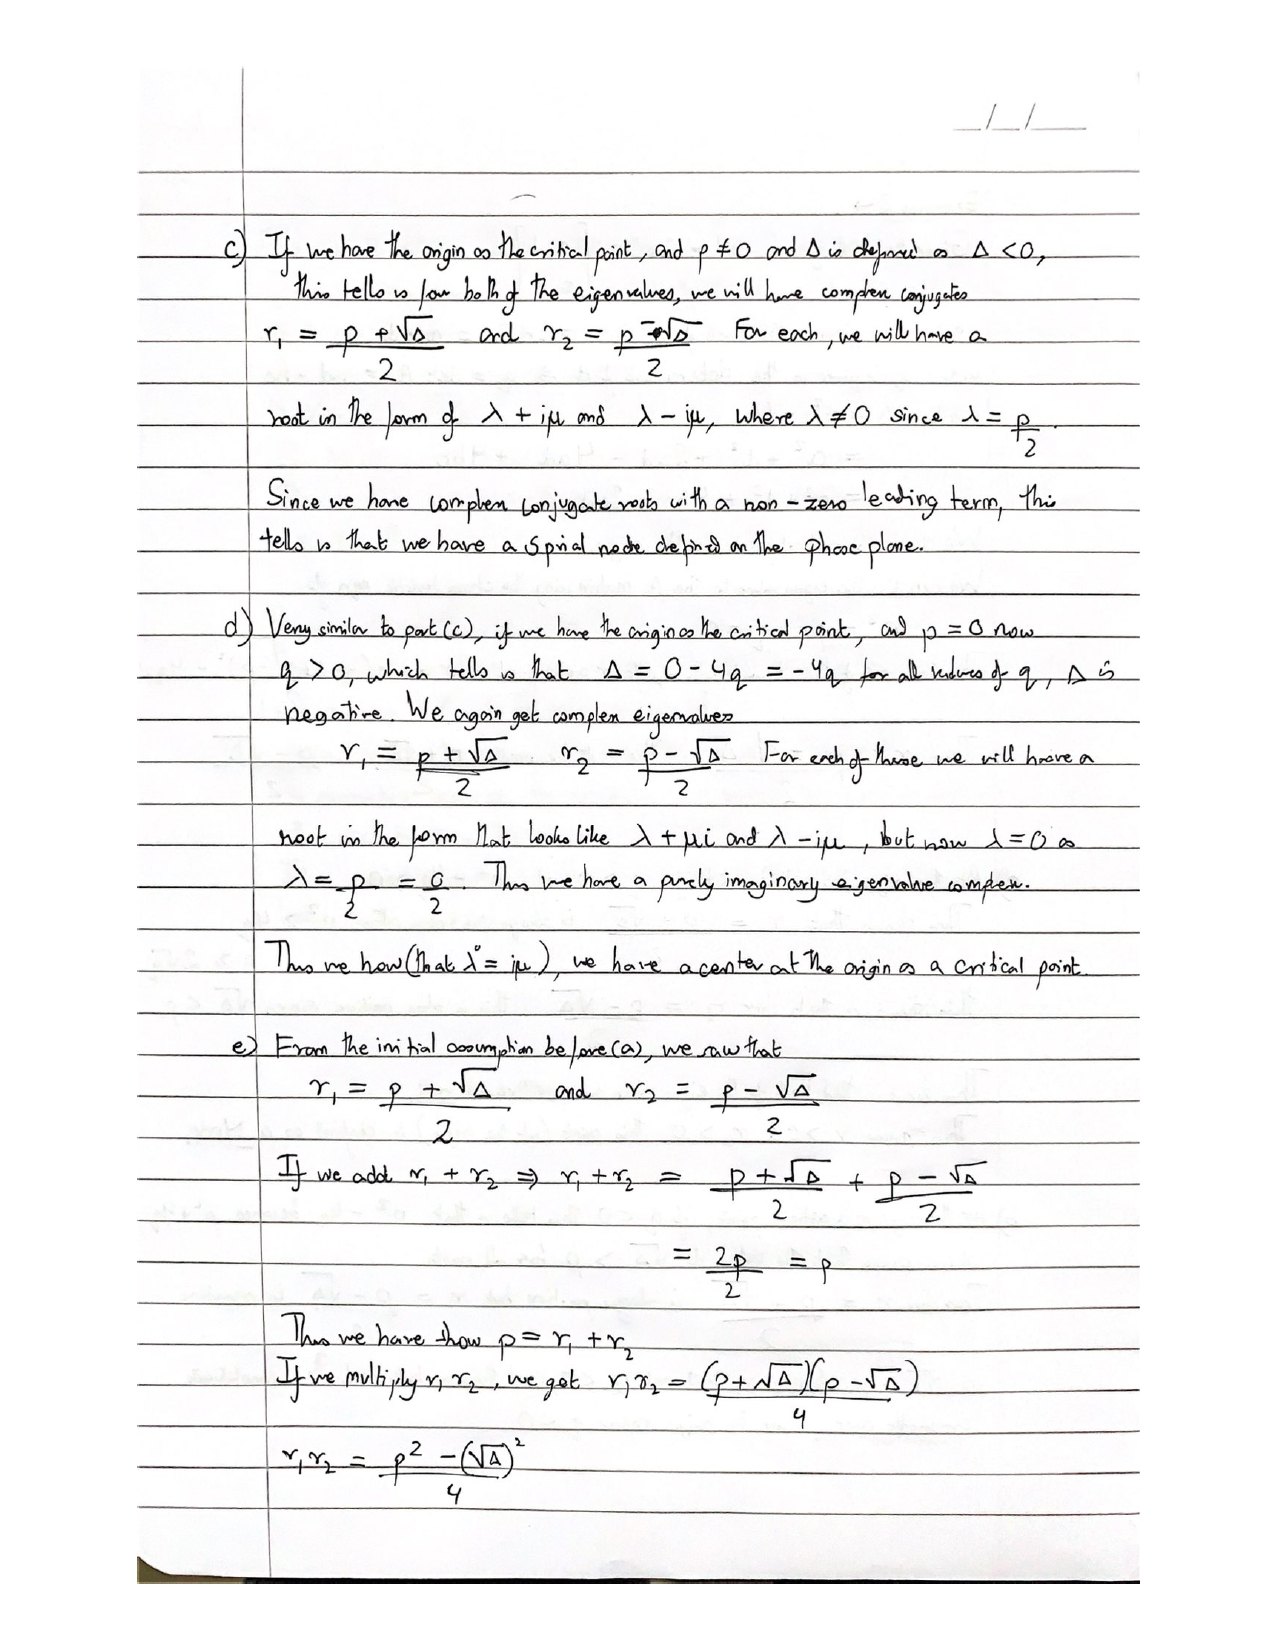 _/_/___
c) If we have the origin as the critical point, and p ≠ 0 and Δ is defined as Δ < 0,
this tells us for both of the eigenvalues, we will have complex conjugates
r₁ = (p + √Δ)/2 and r₂ = (p - √Δ)/2 For each, we will have a
root in the form of λ + iμ and λ - iμ, where λ ≠ 0 since λ = p/2.
Since we have complex conjugate roots with a non-zero leading term, this
tells us that we have a spiral node defined on the phase plane.
d) Very similar to part (c), if we have the origin as the critical point, and p = 0 now
q > 0, which tells us that Δ = 0 - 4q = -4q for all values of q, Δ is
negative. We again get complex eigenvalues
r₁ = (p + √Δ)/2 r₂ = (p - √Δ)/2 For each of these we will have a
root in the form that looks like λ + μi and λ - iμ, but now λ = 0 as
λ = p/2 = 0/2. Thus we have a purely imaginary eigenvalue complex.
Thus we (that λ = iμ), we have a center at the origin as a critical point.
e) From the initial assumption before (a), we saw that
r₁ = (p + √Δ)/2 and r₂ = (p - √Δ)/2
If we add r₁ + r₂ ⇒ r₁ + r₂ = (p + √Δ)/2 + (p - √Δ)/2
= 2p/2 = p
Thus we have show p = r₁ + r₂
If we multiply r₁ r₂, we get r₁r₂ = (p + √Δ)(p - √Δ)/4
r₁r₂ = (p² - (√Δ)²)/4